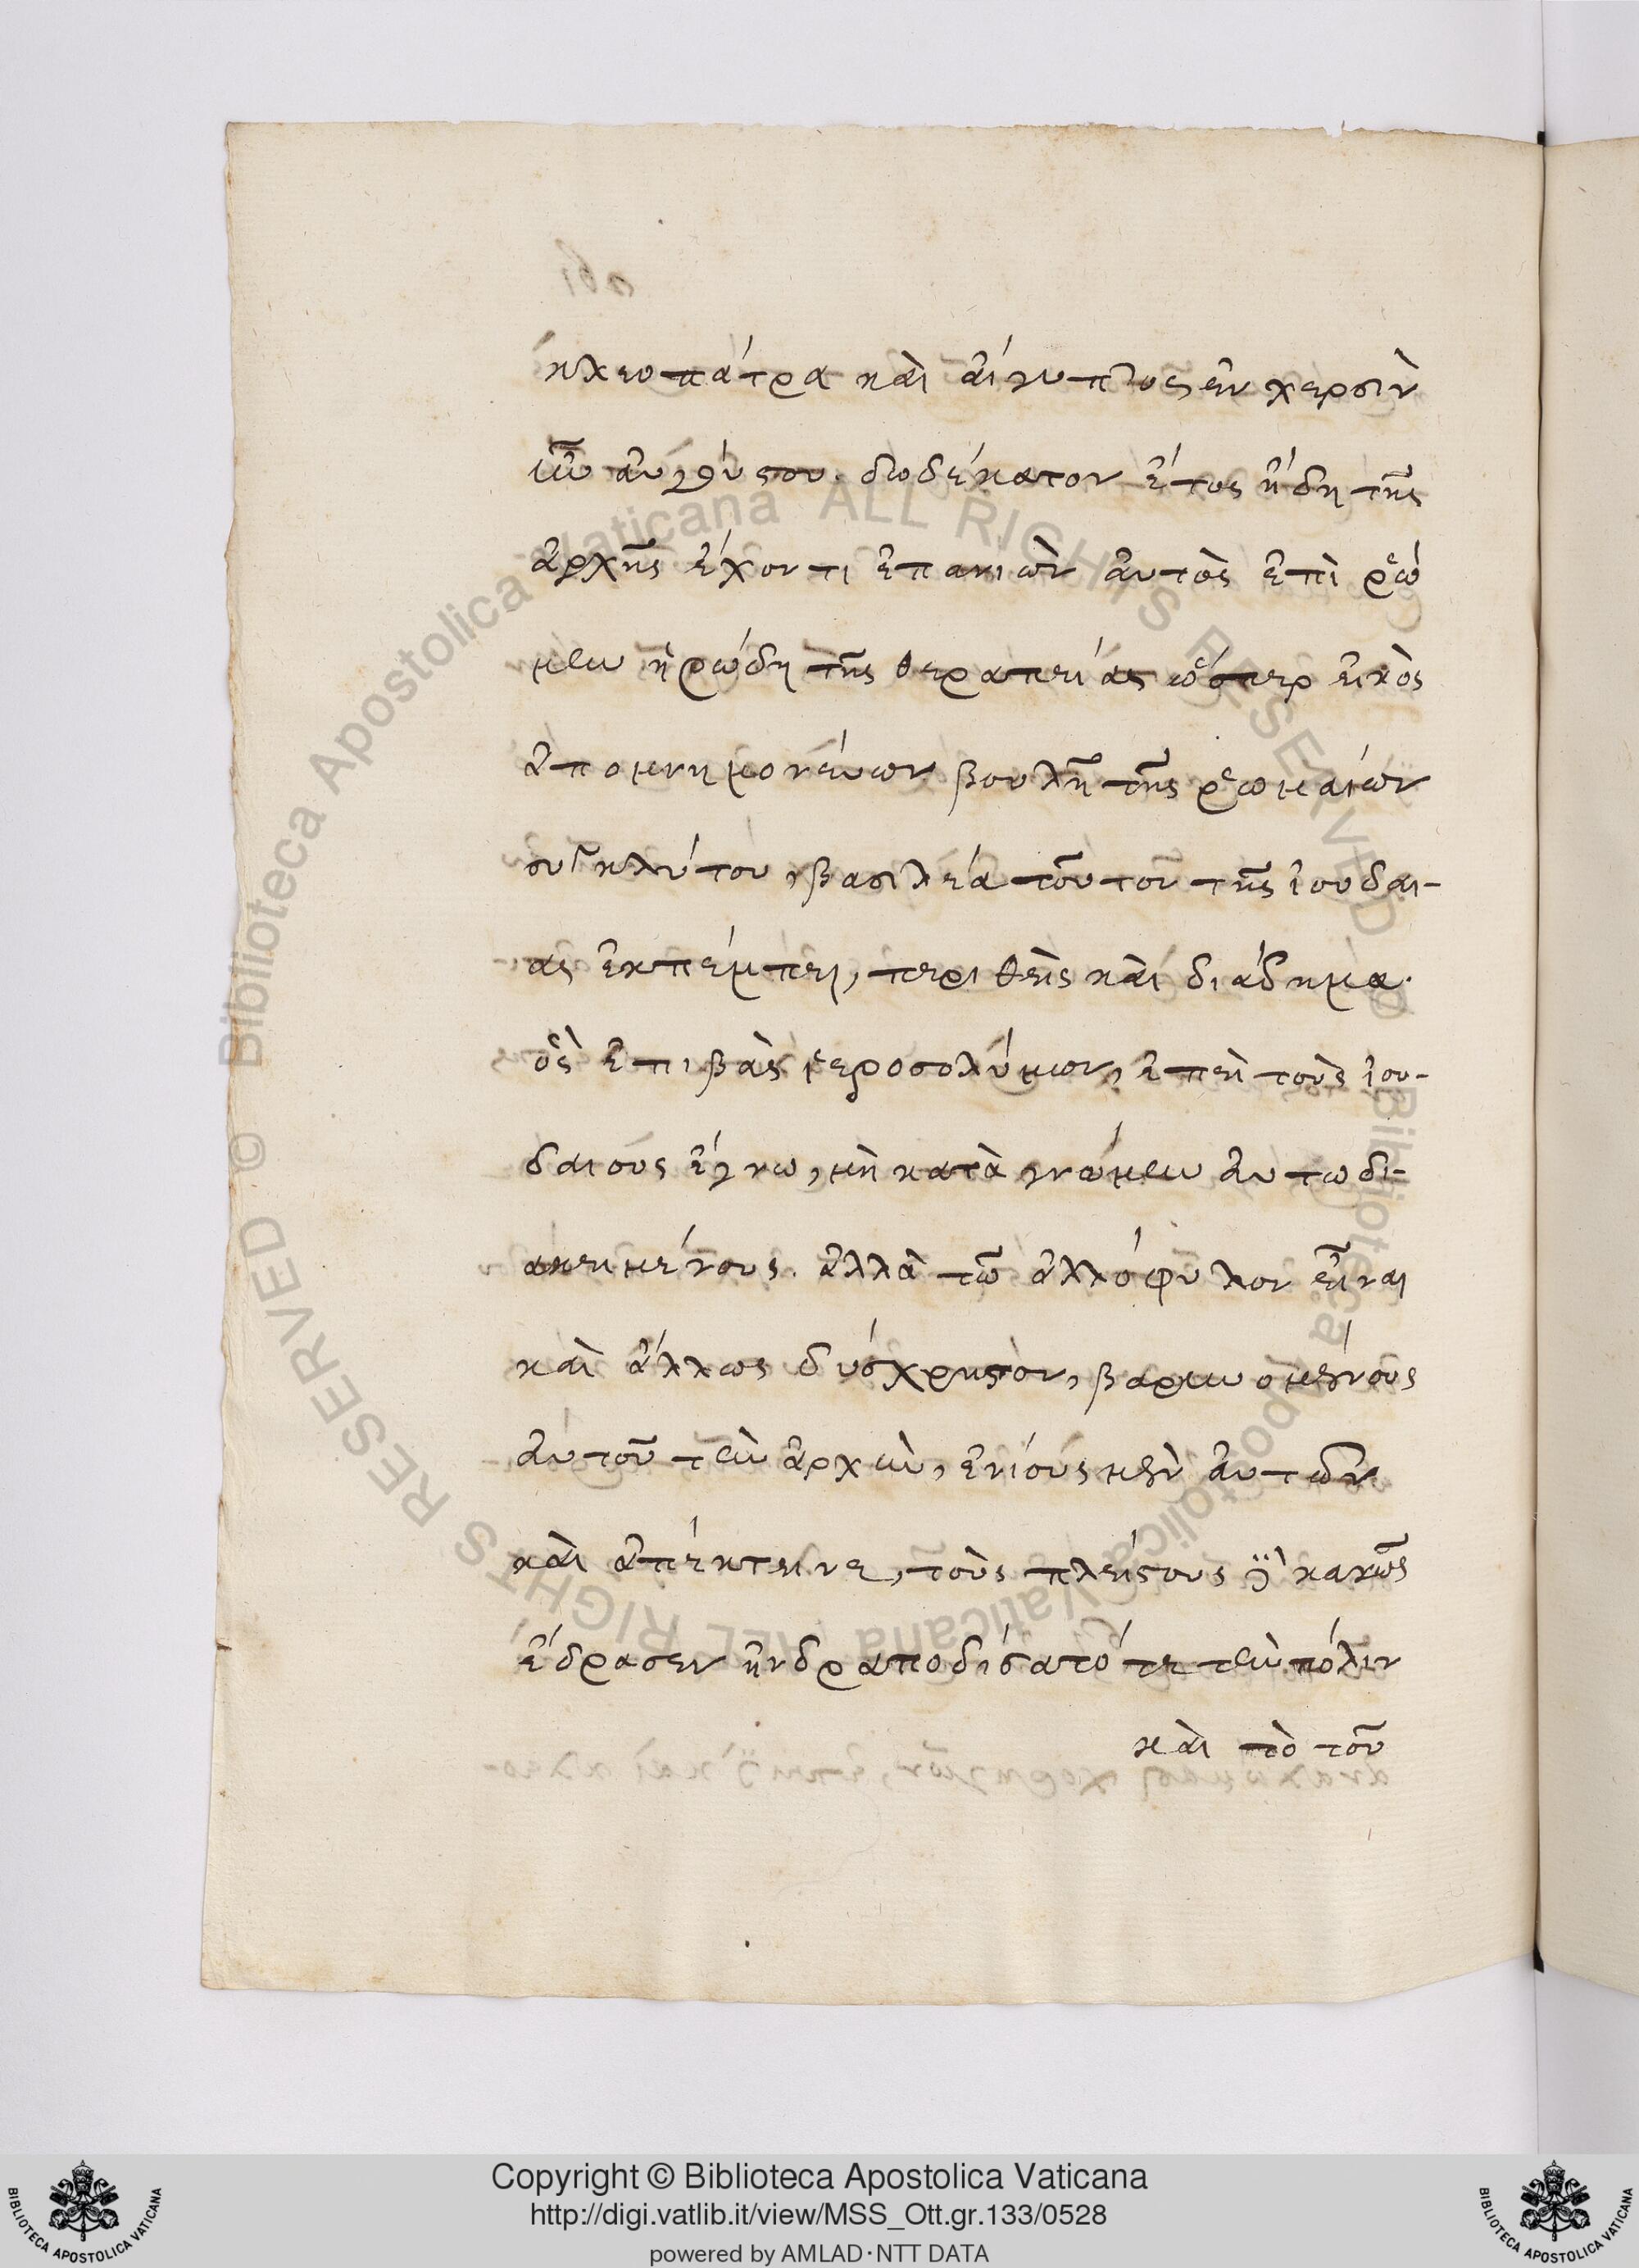 κλεοπάτρα καὶ αἴγυπτος ἐν χερσὶν
ἦν αὐγούστου. δωδέκατον ἔτος ἤδη τῆς
ἀρχῆς ἔχοντι ἐπανιὼν αὐτὸς ἐπὶ ῥώ
μην ἡρώδη τῆς θεραπείας ὥσπερ εἰκὸς
ἀπομνημονεύων βουλῇ τῆς ῥωμαίων
συγκλήτου, βασιλέα τοῦτον τῆς ἰουδαι-
ας ἐκπέμπει, περιθεὶς καὶ διάδημα.
ὃς ἐπιβὰς ἱεροσολύμων, ἐπεὶ τοὺς ἰου-
δαιους ἔγνω, μὴ κατὰ γνώμην αὐτω δι-
ακειμένους. ἀλλὰ τῶ ἀλλόφυλον εἶναι
καὶ ἄλλως δύσχρηστον, βαρυνομένους
αὐτοῦ τὴν ἀρχὴν, ἐνίους μὲν αὐτῶν
καὶ ἀπέκτεινε, τοὺς πλείστους δὲ κακῶς
ἔδρασεν ἠνδραποδίσατό τε τὴν πόλιν
καὶ τὸ τοῦ
Copyright © Biblioteca Apostolica Vaticana
http://digi.vatlib.it/view/MSS_Ott.gr.133/0528
powered by AMLAD·NTT DATA
BIBLIOTECA APOSTOLICA VATICANA
BIBLIOTECA APOSTOLICA VATICANA
© Biblioteca Apostolica Vaticana ALL RIGHTS RESERVED
© Biblioteca Apostolica Vaticana ALL RIGHTS RESERVED